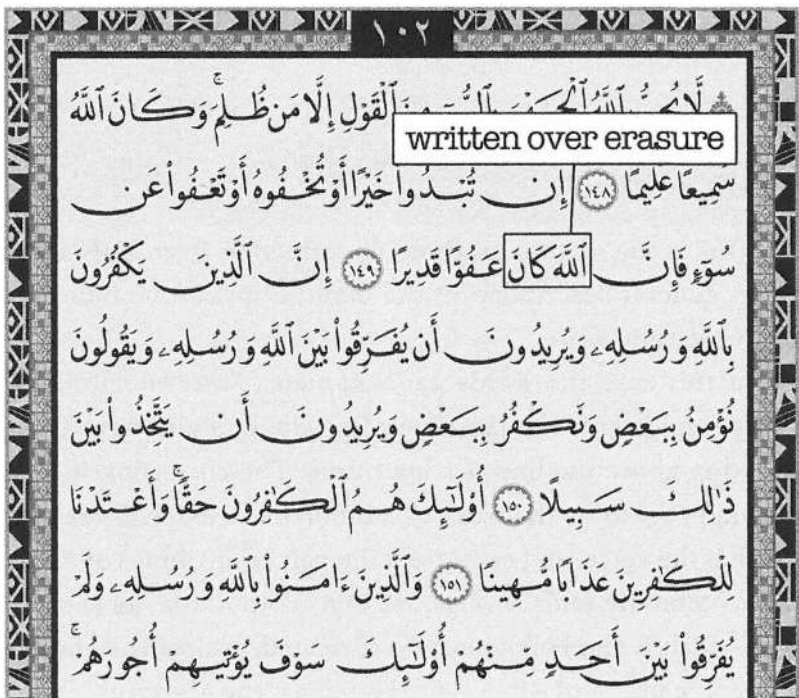 ١٠٢
لَّا يُحِبُّ ٱللَّهُ ٱلْقَوْلِ إِلَّا مَن ظُلِمَ ۚ وَكَانَ ٱللَّهُ
written over erasure
سَمِيعًا عَلِيمًا ١٤٨ إِن تُبْدُوا۟ خَيْرًا أَوْ تُخْفُوهُ أَوْ تَعْفُوا۟ عَن
سُوٓءٍ فَإِنَّ ٱللَّهَ كَانَ عَفُوًّا قَدِيرًا ١٤٩ إِنَّ ٱلَّذِينَ يَكْفُرُونَ
بِٱللَّهِ وَرُسُلِهِۦ وَيُرِيدُونَ أَن يُفَرِّقُوا۟ بَيْنَ ٱللَّهِ وَرُسُلِهِۦ وَيَقُولُونَ
نُؤْمِنُ بِبَعْضٍ وَنَكْفُرُ بِبَعْضٍ وَيُرِيدُونَ أَن يَتَّخِذُوا۟ بَيْنَ
ذَٰلِكَ سَبِيلًا ١٥٠ أُو۟لَـٰٓئِكَ هُمُ ٱلْكَـٰفِرُونَ حَقًّا ۚ وَأَعْتَدْنَا
لِلْكَـٰفِرِينَ عَذَابًا مُّهِينًا ١٥١ وَٱلَّذِينَ ءَامَنُوا۟ بِٱللَّهِ وَرُسُلِهِۦ وَلَمْ
يُفَرِّقُوا۟ بَيْنَ أَحَدٍ مِّنْهُمْ أُو۟لَـٰٓئِكَ سَوْفَ يُؤْتِيهِمْ أُجُورَهُمْ ۗ